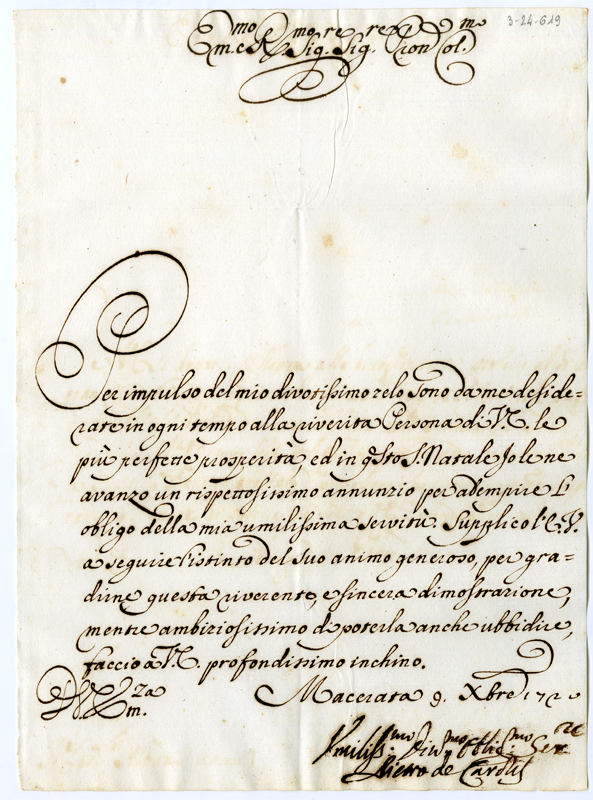 3-24-619
Em.mo e R.mo Sig.re Sig.re Pron Col.mo
Per impulso del mio divotissimo zelo sono da me deside=
rate in ogni tempo alla riverita Persona di V.E. le
più perfette prosperità, ed in q̃sto S. Natale Jo le ne
avanzo un rispettosissimo annunzio per adempire l'
obligo della mia umilissima servitù. Supplico l'E.V.
a seguire l'istinto del suo animo generoso, per gra=
dirne questa riverente, e sincera dimostrazione,
mentre ambiziosissimo di poterla anche ubbidire,
faccio a V.E. profondissimo inchino.
Di V. Em.za
Macerata 9. Xbre 172
Umiliss.mo Div.mo Obblig.mo Ser.re
Pietro de